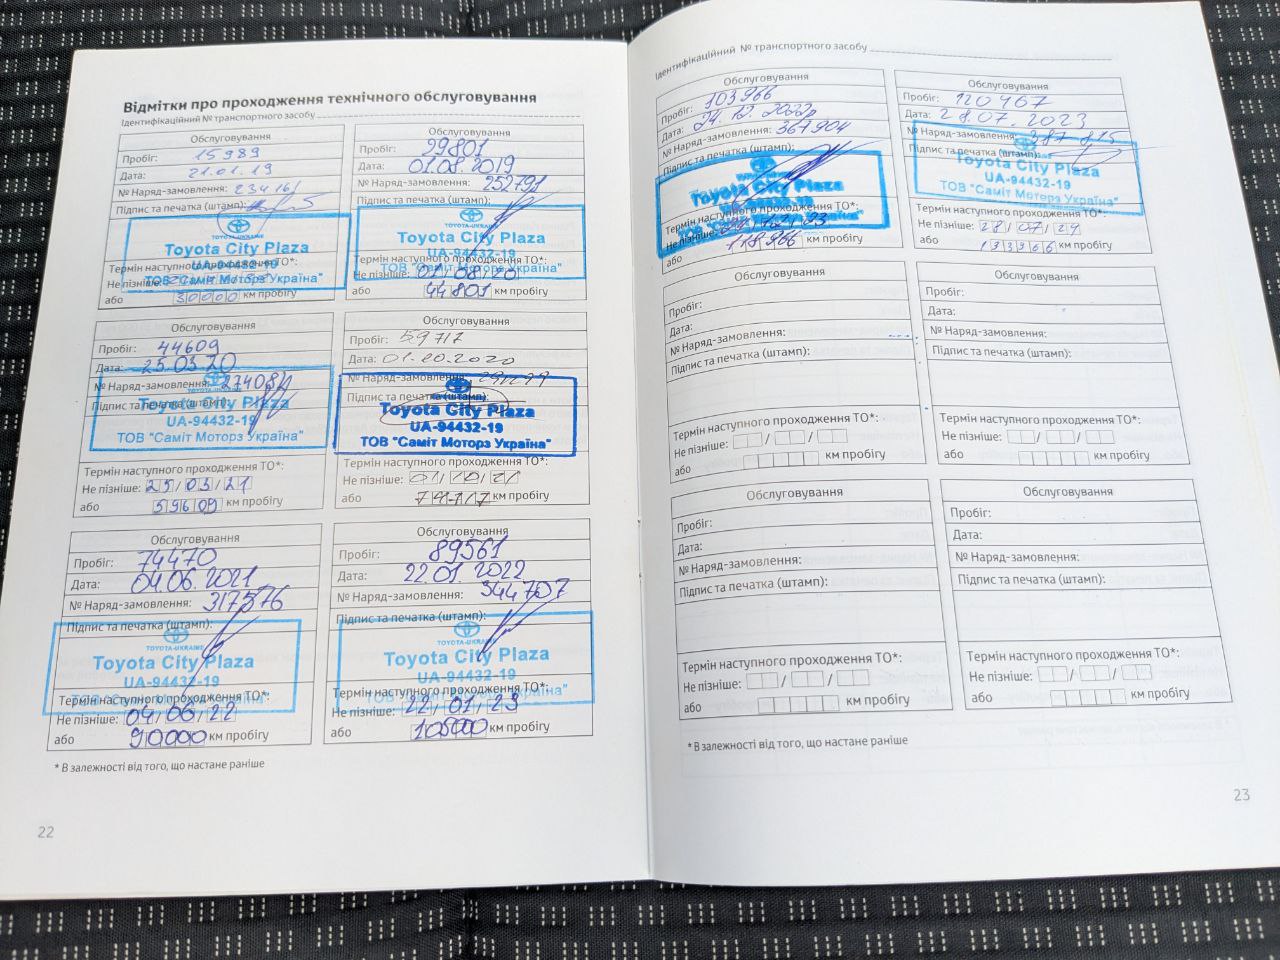 Відмітки про проходження технічного обслуговування
Ідентифікаційний № транспортного засобу
Обслуговування
Пробіг: 15989
Дата: 21.01.19
№ Наряд-замовлення: 234161
Підпис та печатка (штамп):
TOYOTA-UKRAINE
Toyota City Plaza
UA-94432-19
ТОВ "Саміт Моторз Україна"
Термін наступного проходження ТО*:
Не пізніше:
або 30000 км пробігу
Обслуговування
Пробіг: 29801
Дата: 01.08.2019
№ Наряд-замовлення: 252791
Підпис та печатка (штамп):
TOYOTA-UKRAINE
Toyota City Plaza
UA-94432-19
ТОВ "Саміт Моторз Україна"
Термін наступного проходження ТО*:
Не пізніше: 01/08/20
або 44801 км пробігу
Обслуговування
Пробіг: 44609
Дата: 25.03.20
№ Наряд-замовлення:
Підпис та печатка (штамп):
Toyota City Plaza
UA-94432-19
ТОВ "Саміт Моторз Україна"
Термін наступного проходження ТО*:
Не пізніше: 25/03/21
або 59609 км пробігу
Обслуговування
Пробіг: 59717
Дата: 01.10.2020
№ Наряд-замовлення:
Підпис та печатка (штамп):
Toyota City Plaza
UA-94432-19
ТОВ "Саміт Моторз Україна"
Термін наступного проходження ТО*:
Не пізніше: 01/10/21
або 74717 км пробігу
Обслуговування
Пробіг: 74470
Дата: 04.06.2021
№ Наряд-замовлення: 317576
Підпис та печатка (штамп):
TOYOTA-UKRAINE
Toyota City Plaza
UA-94432-19
Термін наступного проходження ТО*:
Не пізніше: 04/06/22
або 90000 км пробігу
Обслуговування
Пробіг: 89561
Дата: 22.01.2022
№ Наряд-замовлення: 344707
Підпис та печатка (штамп):
TOYOTA-UKRAINE
Toyota City Plaza
UA-94432-19
Термін наступного проходження ТО*:
Не пізніше: 22/01/23
або 105000 км пробігу
* В залежності від того, що настане раніше
22
Ідентифікаційний № транспортного засобу
Обслуговування
Пробіг: 103966
Дата: 24.12.2022р
№ Наряд-замовлення: 367904
Підпис та печатка (штамп):
Toyota City Plaza
Термін наступного проходження ТО*:
Не пізніше:
або 118966 км пробігу
Обслуговування
Пробіг: 120467
Дата: 28.07.2023
№ Наряд-замовлення: 387 815
Підпис та печатка (штамп):
Toyota City Plaza
UA-94432-19
ТОВ "Саміт Моторз Україна"
Термін наступного проходження ТО*:
Не пізніше: 28/07/24
або 133366 км пробігу
Обслуговування
Пробіг:
Дата:
№ Наряд-замовлення:
Підпис та печатка (штамп):
Термін наступного проходження ТО*:
Не пізніше: / /
або км пробігу
Обслуговування
Пробіг:
Дата:
№ Наряд-замовлення:
Підпис та печатка (штамп):
Термін наступного проходження ТО*:
Не пізніше: / /
або км пробігу
Обслуговування
Пробіг:
Дата:
№ Наряд-замовлення:
Підпис та печатка (штамп):
Термін наступного проходження ТО*:
Не пізніше: / /
або км пробігу
Обслуговування
Пробіг:
Дата:
№ Наряд-замовлення:
Підпис та печатка (штамп):
Термін наступного проходження ТО*:
Не пізніше: / /
або км пробігу
* В залежності від того, що настане раніше
23